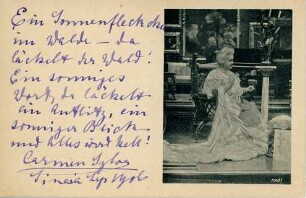 Ein Sonnenfleckchen
im Walde – da
lächelt der Wald!
Ein sonniges
Wort, da lächelt
ein Antlitz, ein
sonniger Blick
und Alles wird hell!
Carmen Sylva
Sinaia